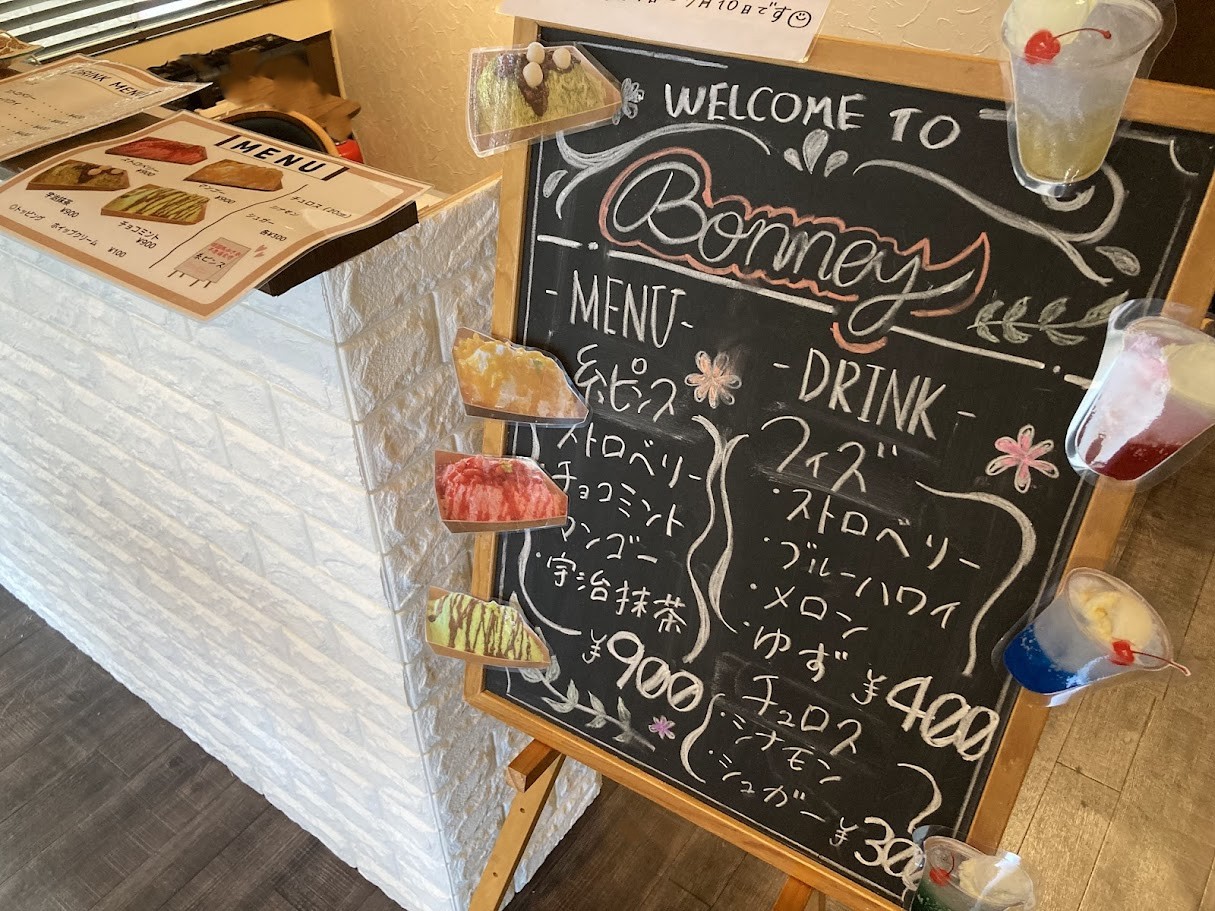 月10日です
DRINK MENU
MENU
ストロベリー
¥900
マンゴー
¥900
宇治抹茶
¥900
チョコミント
¥900
◎トッピング
ホイップクリーム ¥100
チュロス(20cm)
シナモン
シュガー
各¥300
糸ピンス
WELCOME TO
Bonney
-MENU-
糸ピンス
ストロベリー
チョコミント
マンゴー
・宇治抹茶
¥900
-DRINK-
フィズ
・ストロベリー
・ブルーハワイ
・メロン
・ゆず
¥400
チュロス
・シナモン
・シュガー
¥300